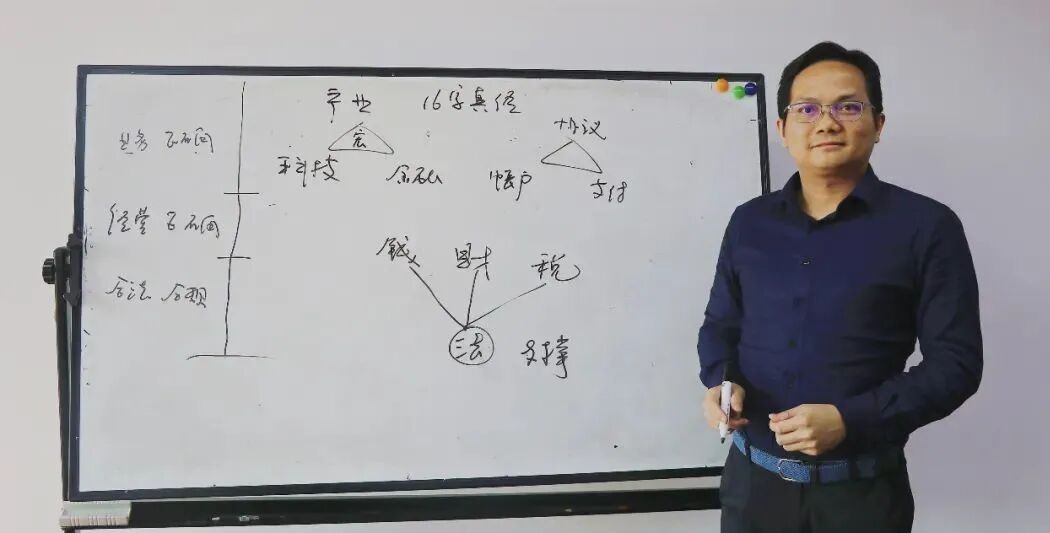 产业 16字真经
协议
业务
科技 金融 帐户 支付
经营
钱 财 税
合法 合规
法 支撑